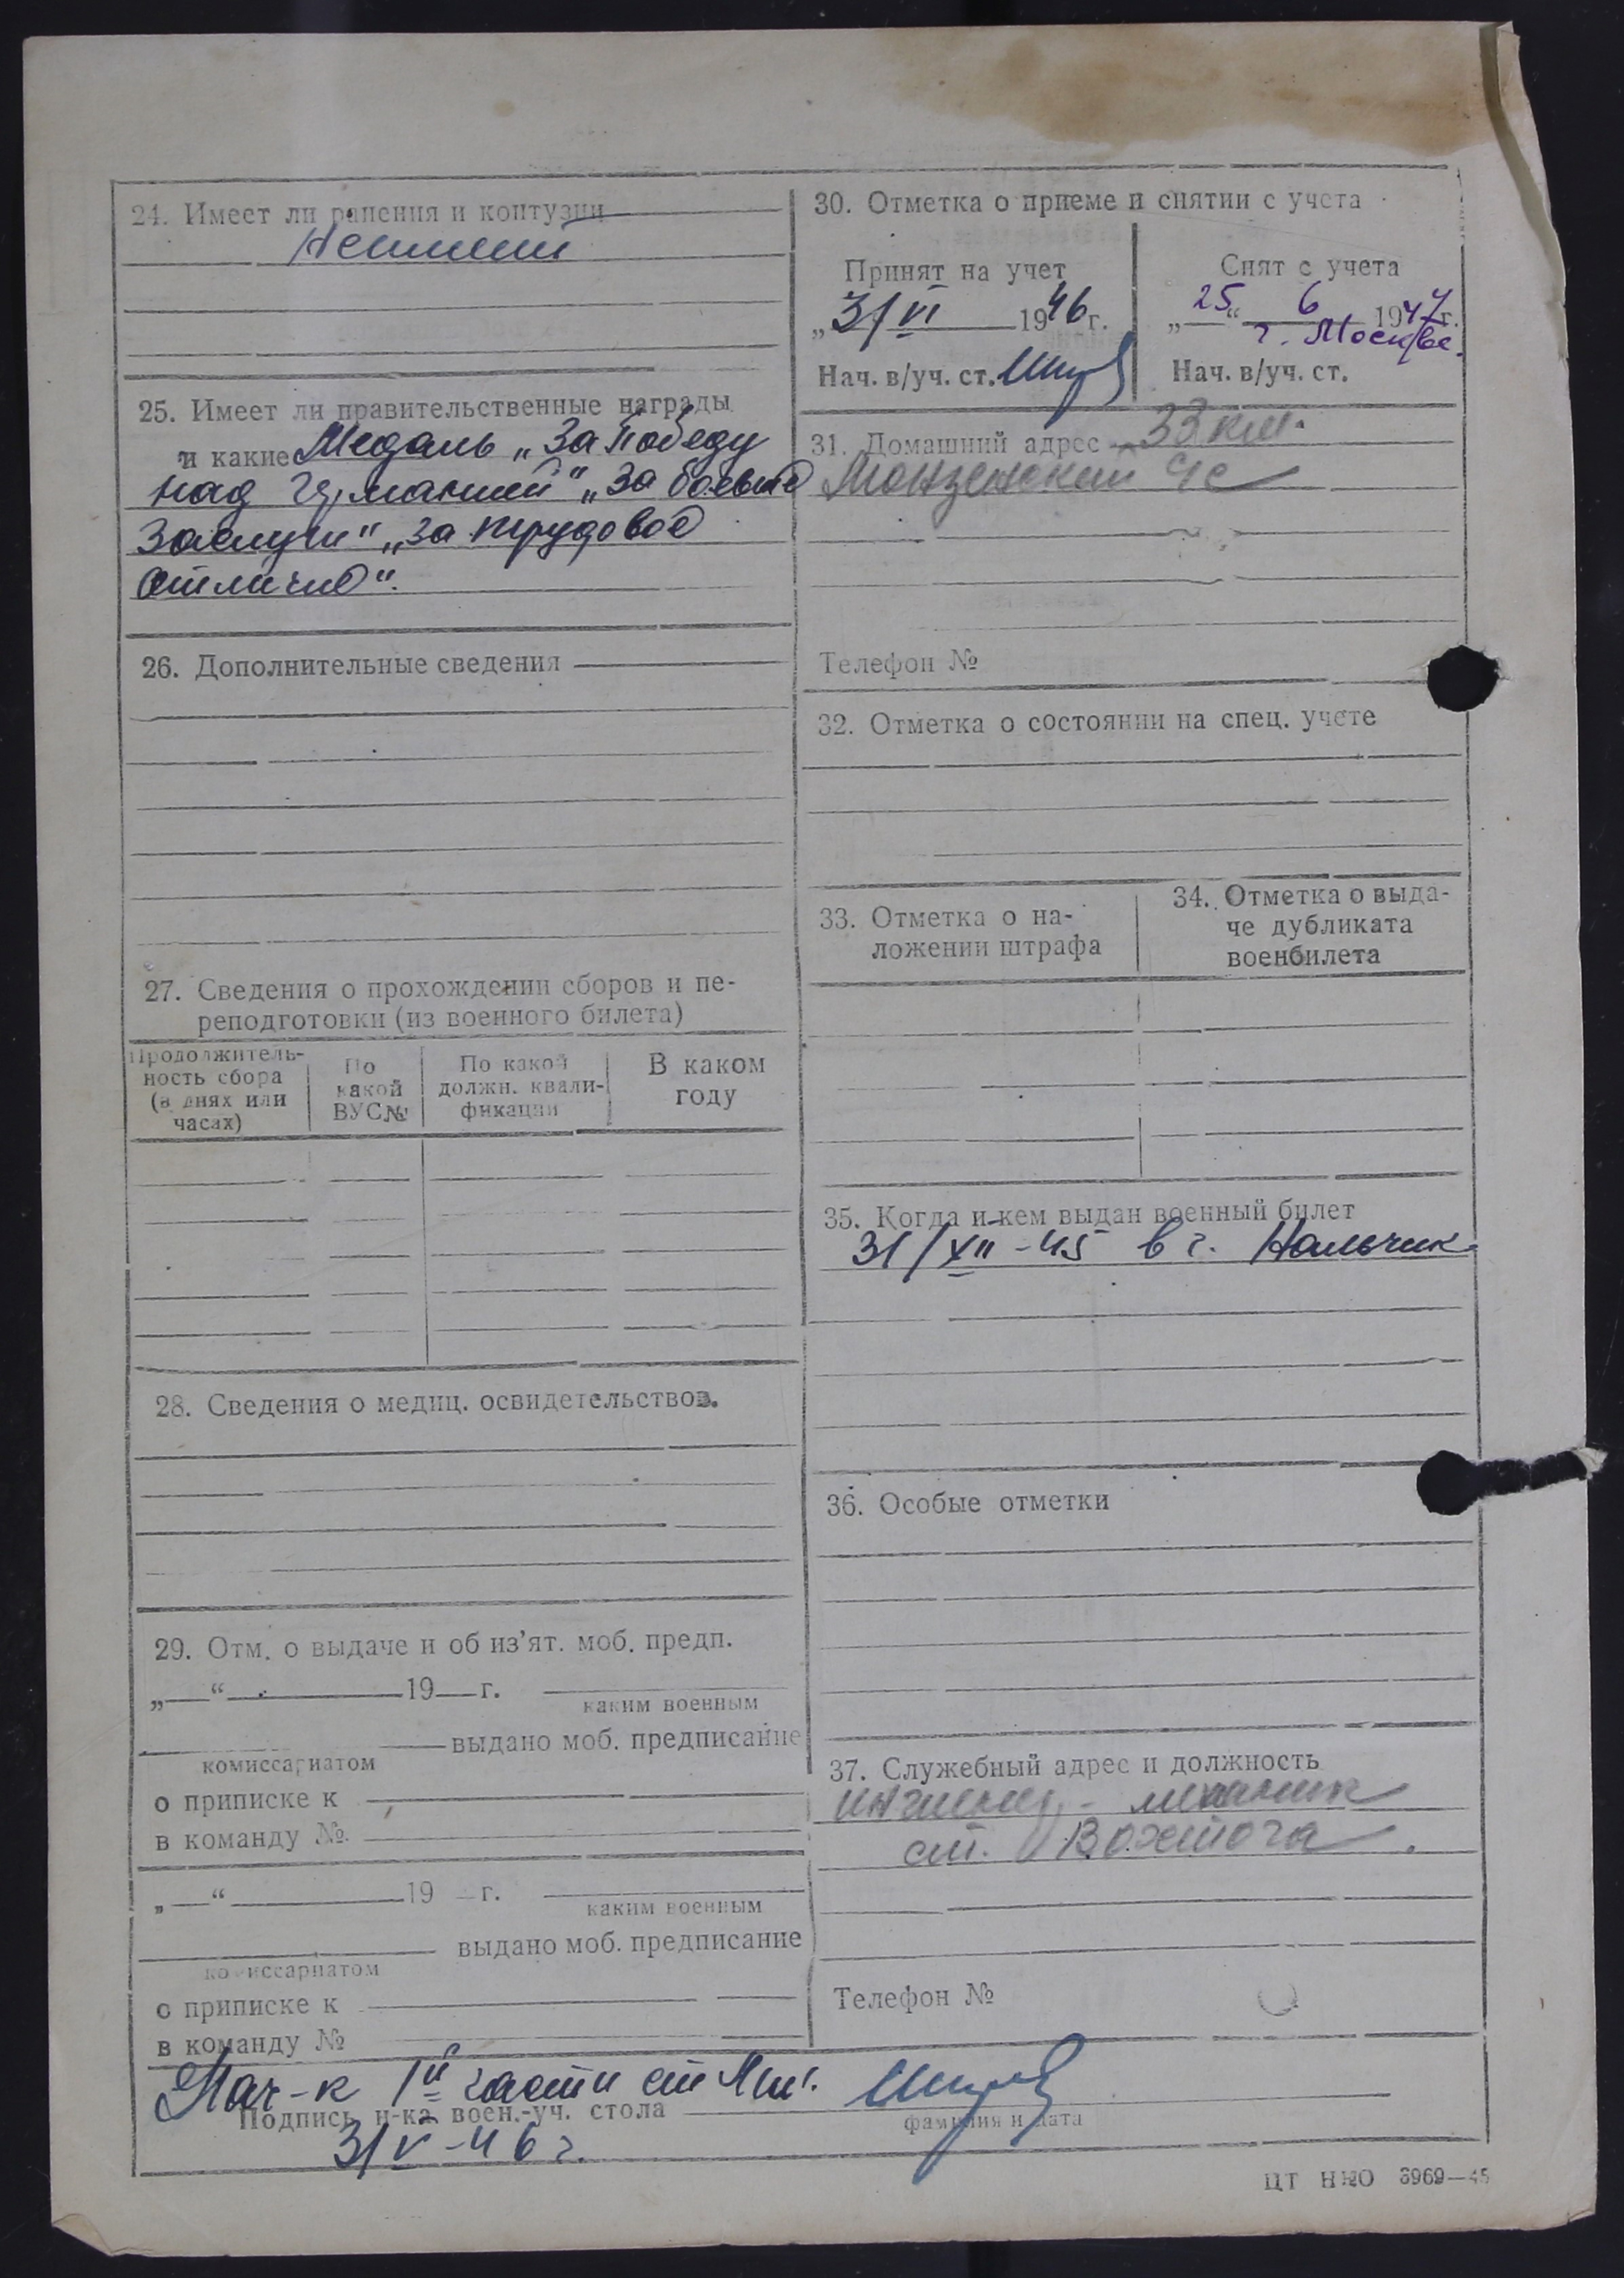 24. Имеет ли ранения и контузии
25. Имеет ли правительственные награды
и какие Медаль „За Победу
над Германией" „За боевые
заслуги" „За трудовое
отличие".
26. Дополнительные сведения
27. Сведения о прохождении сборов и пе-
реподготовки (из военного билета)
Продолжитель-
ность сбора
(в днях или
часах)
По
какой
ВУС№
По какой
должн. квали-
фикации
В каком
году
28. Сведения о медиц. освидетельствов.
29. Отм. о выдаче и об из’ят. моб. предп.
„ “ 19 г.
каким военным
выдано моб. предписание
комиссариатом
о приписке к
в команду №
„ “ 19 г.
каким военным
выдано моб. предписание
комиссариатом
о приписке к
в команду №
30. Отметка о приеме и снятии с учета
Принят на учет
„31/VI 1946 г.
Нач. в/уч. ст.
Снят с учета
„25“ 6 1947 г.
г. Москве.
Нач. в/уч. ст.
31. Домашний адрес 33 км.
Монзенский
Телефон №
32. Отметка о состоянии на спец. учете
33. Отметка о на-
ложении штрафа
34. Отметка о выда-
че дубликата
военбилета
35. Когда и кем выдан военный билет
31/XII-45 в г. Нальчик
36. Особые отметки
37. Служебный адрес и должность
инженер - механик
ст. Вохтога.
Телефон №
Нач-к 1й части
Подпись н-ка воен.-уч. стола
фамилия и дата
31/V-46 г.
ЦТ НКО 3969—45